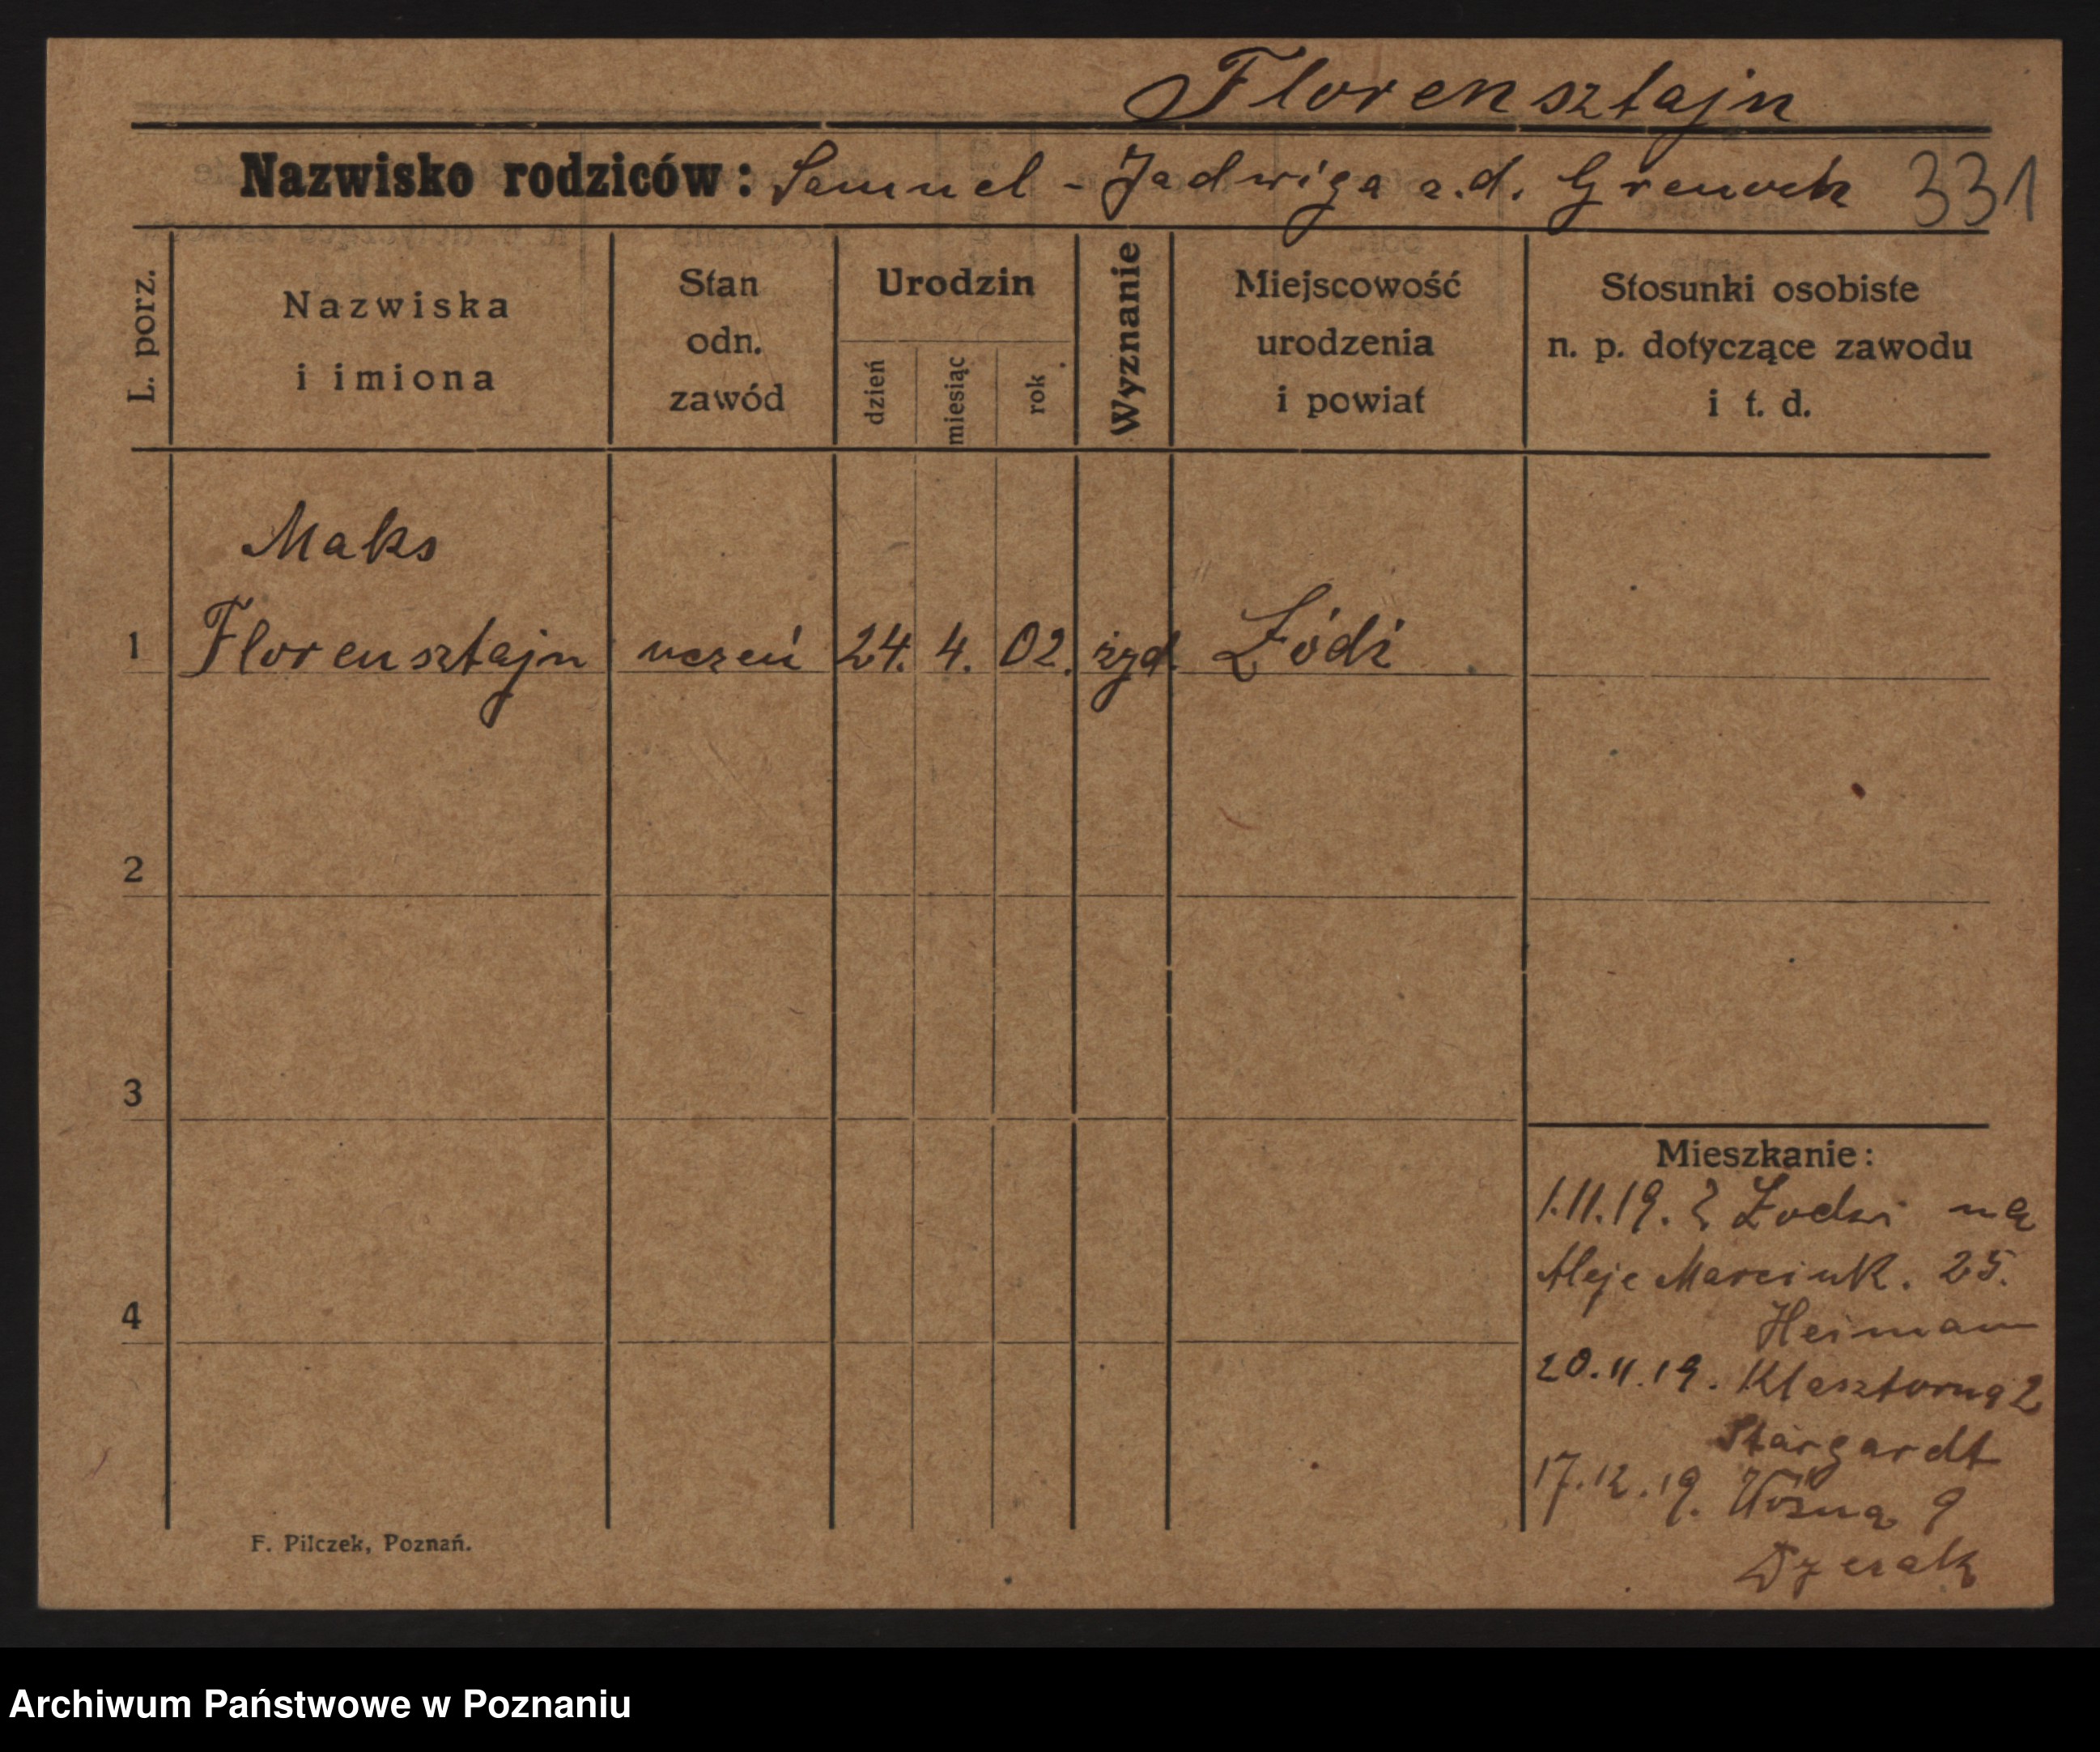 Florensztajn
Nazwisko rodziców: Samuel - Jadwiga z.d. 331
L. porz.
Nazwiska
i imiona
Stan
odn.
zawód
Urodzin
dzień
miesiąc
rok
Wyznanie
Miejscowość
urodzenia
i powiat
Stosunki osobiste
n. p. dotyczące zawodu
i t. d.
Maks
1 Florensztajn uczeń 24. 4. 02. żyd. Łódź
2
3
4
Mieszkanie:
1.11.19. Z Łodzi na
Aleje Marcink. 25.
Heimann
20.11.19. Klasztorną 2
Stargardt
17.12.19. Woźną 9
F. Pilczek, Poznań.
Archiwum Państwowe w Poznaniu